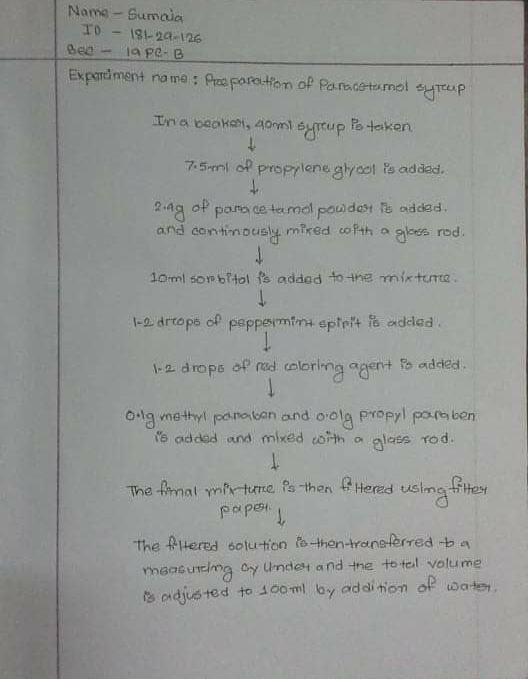 Name - Sumaia
ID - 181-29-126
Sec - 19 PC-B
Experiment name: Preparation of Paracetamol syrup
In a beaker, 40ml syrup is taken
↓
7.5ml of propylene glycol is added.
↓
2.4g of paracetamol powder is added.
and continously mixed with a glass rod.
↓
10ml sorbitol is added to the mixture.
↓
1-2 drops of peppermint spirit is added.
↓
1-2 drops of red coloring agent is added.
↓
0.1g methyl paraben and 0.01g propyl paraben
is added and mixed with a glass rod.
↓
The final mixture is then filtered using filter
paper.
↓
The filtered solution is then transferred to a
measuring cylinder and the total volume
is adjusted to 100ml by addition of water.